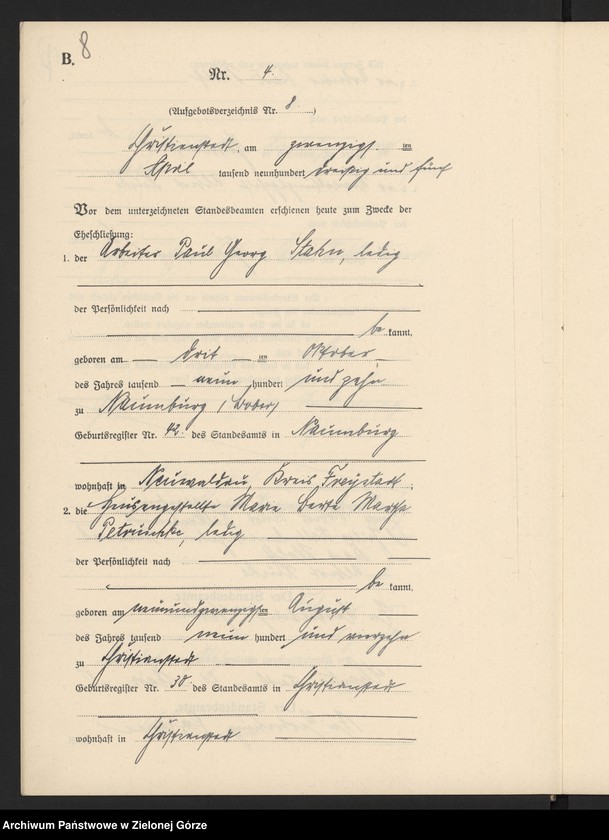 B. 8
Nr. 4.
(Aufgebotsverzeichnis Nr. 8.)
Christianstadt, am zwanzigsten
April tausend neunhundert dreißig und fünf
Vor dem unterzeichneten Standesbeamten erschienen heute zum Zwecke der
Eheschließung:
1. der Arbeiter Paul Georg Stahn, ledig
der Persönlichkeit nach
be kannt,
geboren am — drit — ten Oktober
des Jahres tausend — neun hundert und zehn
zu Naumburg (Bober)
Geburtsregister Nr. 42. des Standesamts in Naumburg
wohnhaft in Neuwaldau, Kreis Freystadt;
2. die Hausangestellte Marie Berta Martha
ledig
der Persönlichkeit nach
be kannt,
geboren am neunundzwanzigsten August
des Jahres tausend neun hundert und vierzehn
zu Christianstadt
Geburtsregister Nr. 30. des Standesamts in Christianstadt
wohnhaft in Christianstadt
Archiwum Państwowe w Zielonej Górze